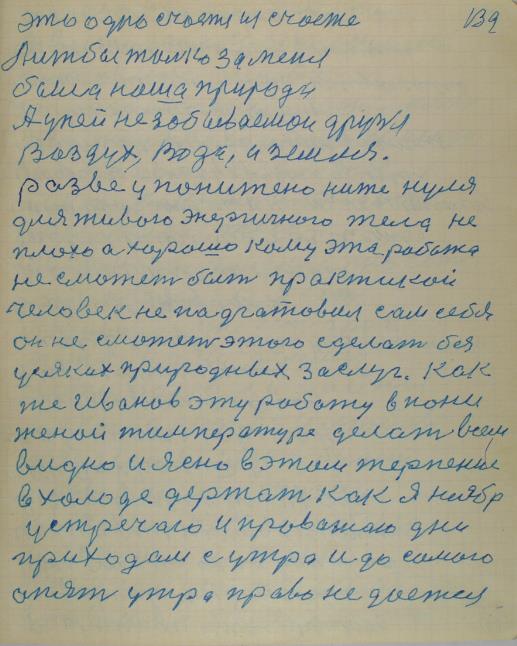 это одно счастя и счасте 139
Лиж бы толко за меня
была наша природа
А упей незабываемои друзя
Воздух, Вода, и земля.
разве у понижено ниже нуля
для живого энергичного тела не
плохо а хорошо кому эта работа
не сможет быт практикой
человек не падготовил сам себя
он не сможет этого сделат без
усяких природных заслуг. Как
же Иванов эту работу в пони
женой температуре делат всем
видно и ясно в этом терпение
в холоде держат как я ноябр
устречаю и проважаю дни
приходам с утра и до самого
опят утра право не дается